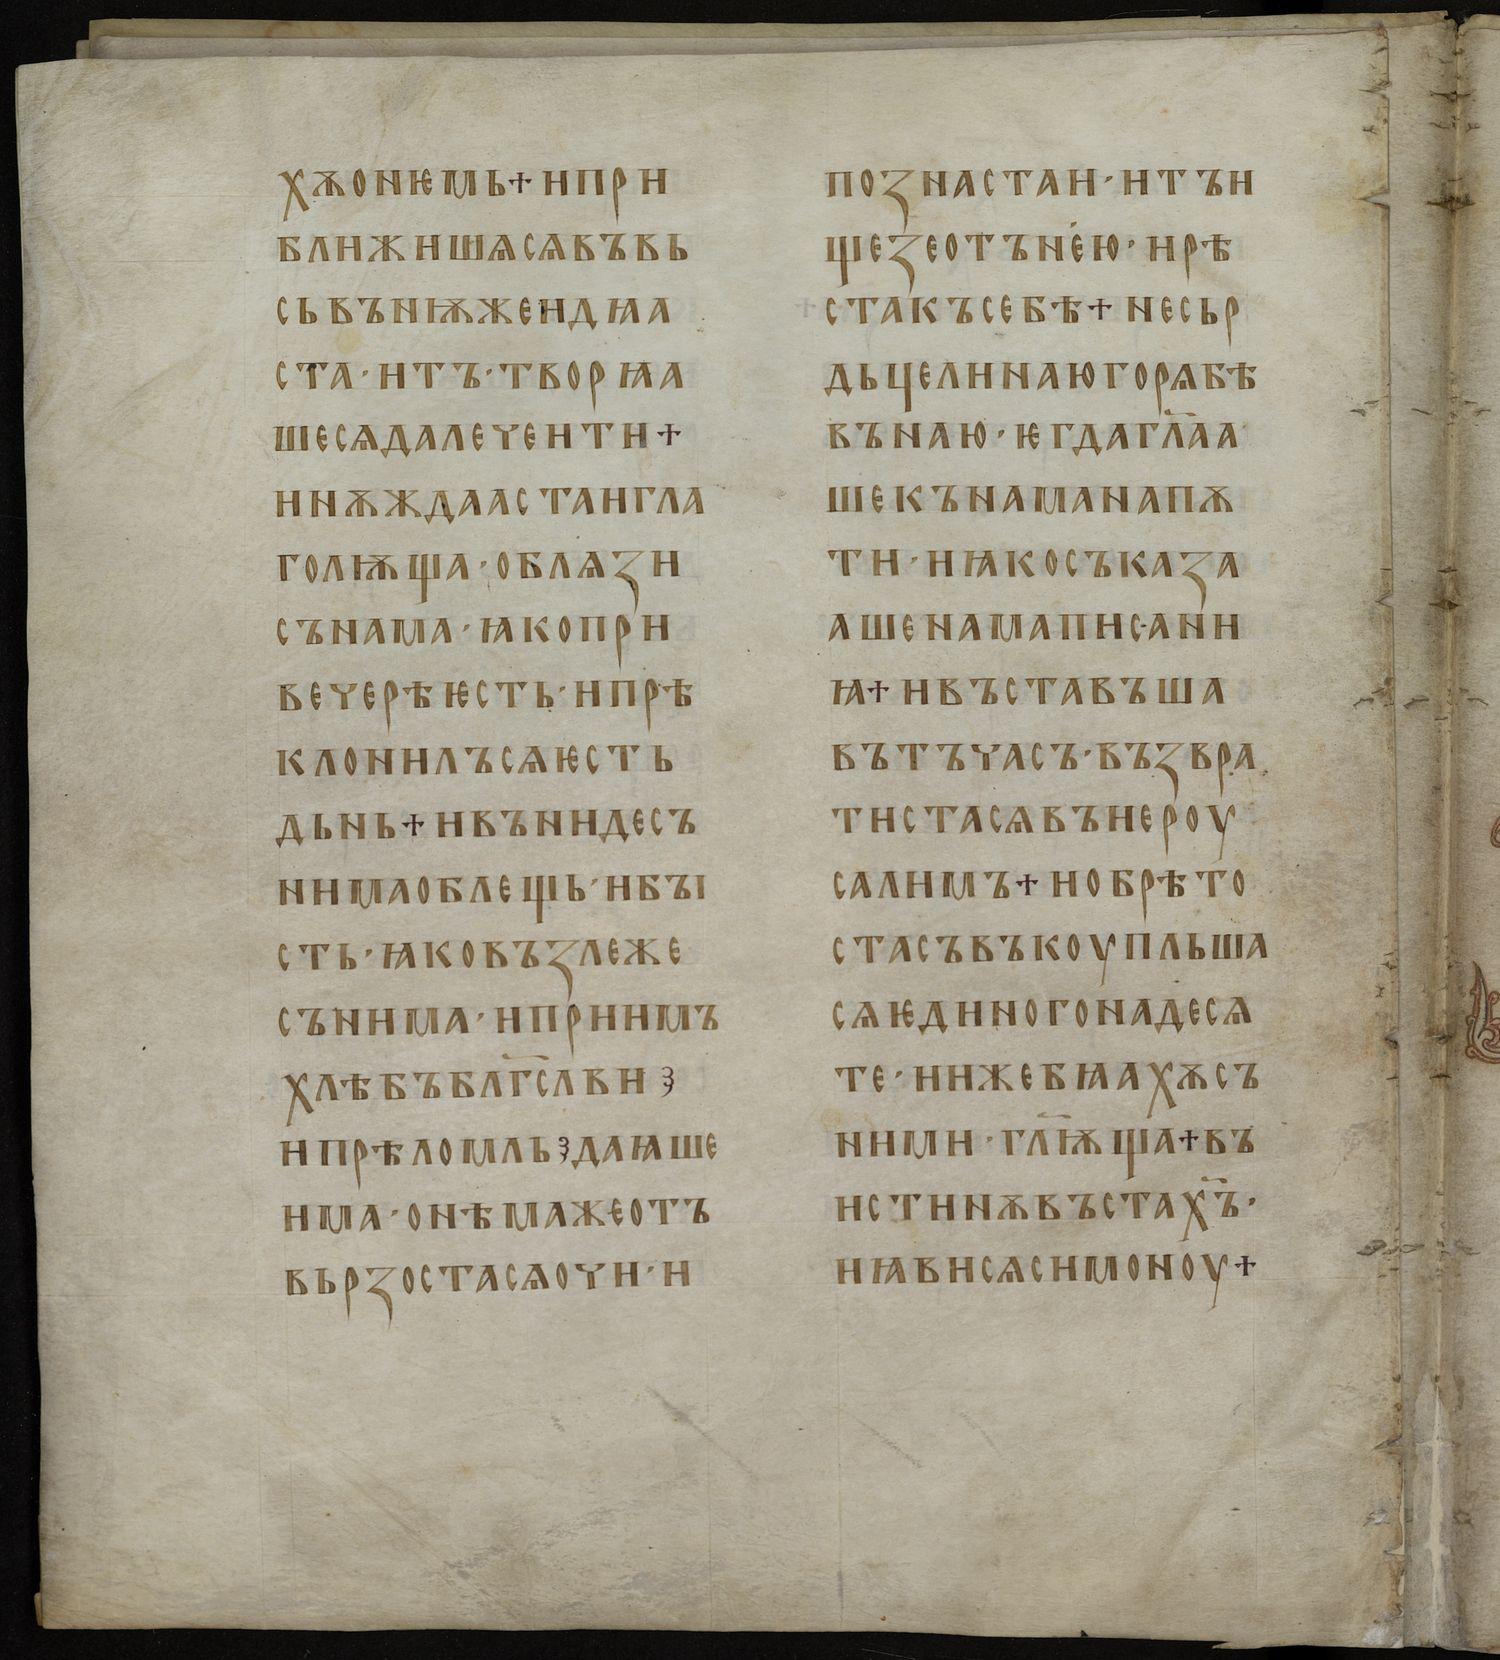 хѫонѥмь+ипри
ближишѧсѧвъвь
сьвънѭжеидꙗа
ста·итъ·творꙗа
шесѧдалечеити+
инѫждаастаигла
голѭща·облѧзи
сънама·ꙗкопри
вечерѣѥсть·ипрѣ
клонилъсѧѥсть
дьнь+ивънидесъ
нимаоблещь·ибꙑ
сть·ꙗковъзлеже
сънима·иприимъ
хлѣбъблг҃слвиꙁ
ипрѣломльꙁдаꙗше
има·онѣмажеотъ
вьрзостасѧочи·и
познастаи·итъи
щезеотънею·ирѣ
стакъсебѣ+несьр
дьцелинаюгорѧбѣ
вънаю·ѥгдагл҃аа
шекънаманапѫ
ти·иꙗкосъказа
ашенамапис·ани
ꙗ+ивъставъша
вътъчасъ·възвра
тистасѧвъиероу
салимъ+иобрѣто
стасъвъкоупльша
сѧѥдиногонадесѧ
те·иижебꙗахѫсъ
ними·гл҃ѭща+въ
истинѫвъстах҃ъ·
иꙗвисѧсимоноу+